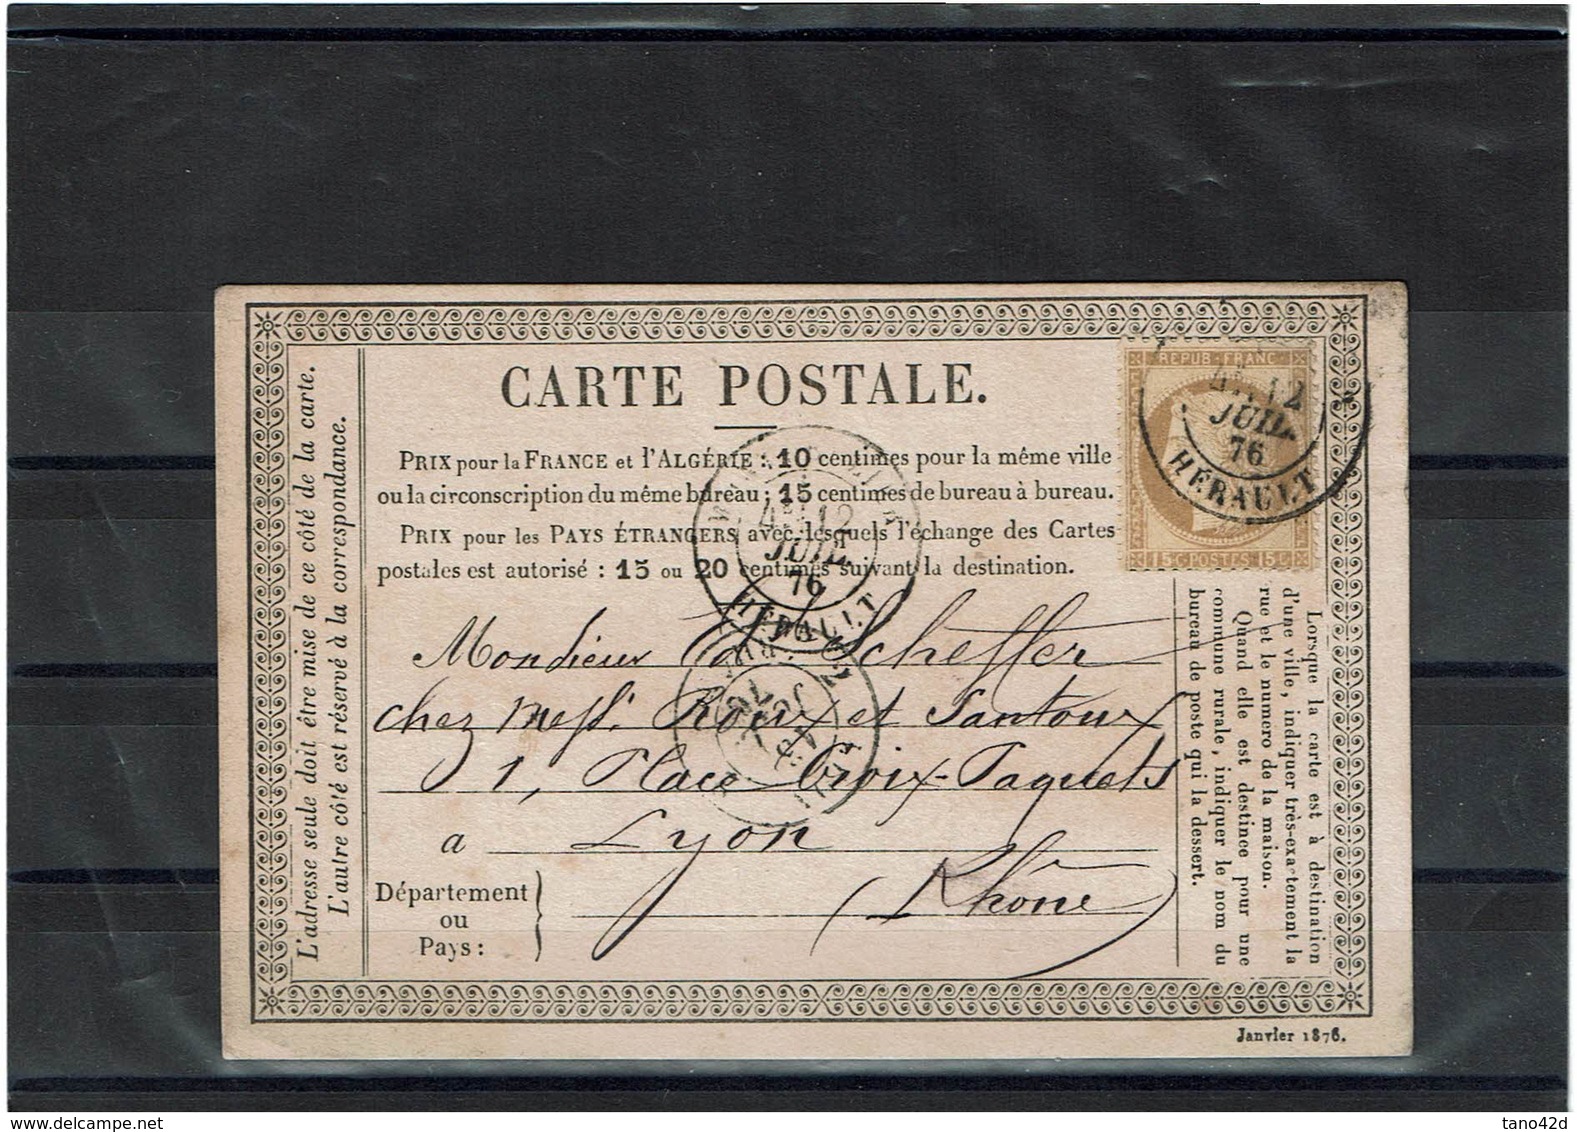 CARTE POSTALE.
PRIX pour la FRANCE et l'ALGÉRIE : 10 centimes pour la même ville
ou la circonscription du même bureau ; 15 centimes de bureau à bureau.
PRIX pour les PAYS ÉTRANGERS avec lesquels l'échange des Cartes
postales est autorisé : 15 ou 20 centimes suivant la destination.
L'adresse seule doit être mise de ce côté de la carte.
L'autre côté est réservé à la correspondance.
REPUB · FRANC
15 C · POSTES · 15 C
4E 12
JUIL
76
HERAULT
4E 12
JUIL.
76
HERAULT
Monsieur Ed. Scheffer
chez Mess. Roux et Santoux
1, Place Croix-Paquets
a Lyon
Département
ou
Pays :
(Rhône)
Lorsque la carte est à destination
d'une ville, indiquer très-exactement la
rue et le numéro de la maison.
Quand elle est destinée pour une
commune rurale, indiquer le nom du
bureau de poste qui la dessert.
Janvier 1876.
www.delcampe.net
tano42d